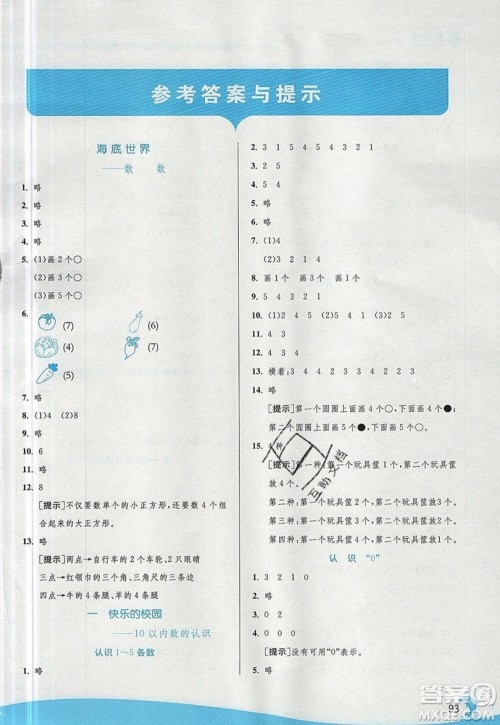 参考答案与提示
海底世界
——数 数
1. 略
2. 略
3. 略
4. 略
5. (1)画2个○
(2)画3个○
(3)画5个○
6. (7) (6)
(4) (2)
(5)
7. 略
8. (1)4 (2)8
9. 略
10. 6
11. 略
12. 8
[提示]不仅要数单个的小正方形,还要数4个组
合起来的大正方形。
13. 略
[提示]两点→自行车的2个车轮、2只眼睛
三点→红领巾的三个角、三角尺的三个角
四点→牛的4条腿、大象的4条腿
一 快乐的校园
——10以内数的认识
认识1~5各数
1. 略
2. 1 3 2 1 5 4 5 4 3 2 1
3. 略
4. 2 5 4
5. 略
6. 略
7. (1)4
(2)3 1 5
8. 画1个 画3个 画1个
9. 5 4 3 2 1
10. (1)3 2 4 (2)5 4 2 3 1
11. 4 3
12. 4 2 3 5 1
13. 横着:3 3 4 3
14. 略
[提示]第一个圆圈上面画4个○,下面画4个●;
第二个圆圈上面画5个○,下面画5个●。
15. 4种
[提示]第一种:第一个玩具筐1个,第二个玩具
筐放4个;
第二种:第一个玩具筐放2个,第二个玩具筐放3个;
第三种:第一个玩具筐放3个,第二个玩具筐放2个;
第四种:第一个玩具筐放4个,第二个玩具筐放1个。
认识“0”
1. 3 2 1 0
2. 略
3. 0 0 0
4. 0
[提示]没有可用“0”表示。
5. 略
互助文档
93
答案圈
MXQE.COM